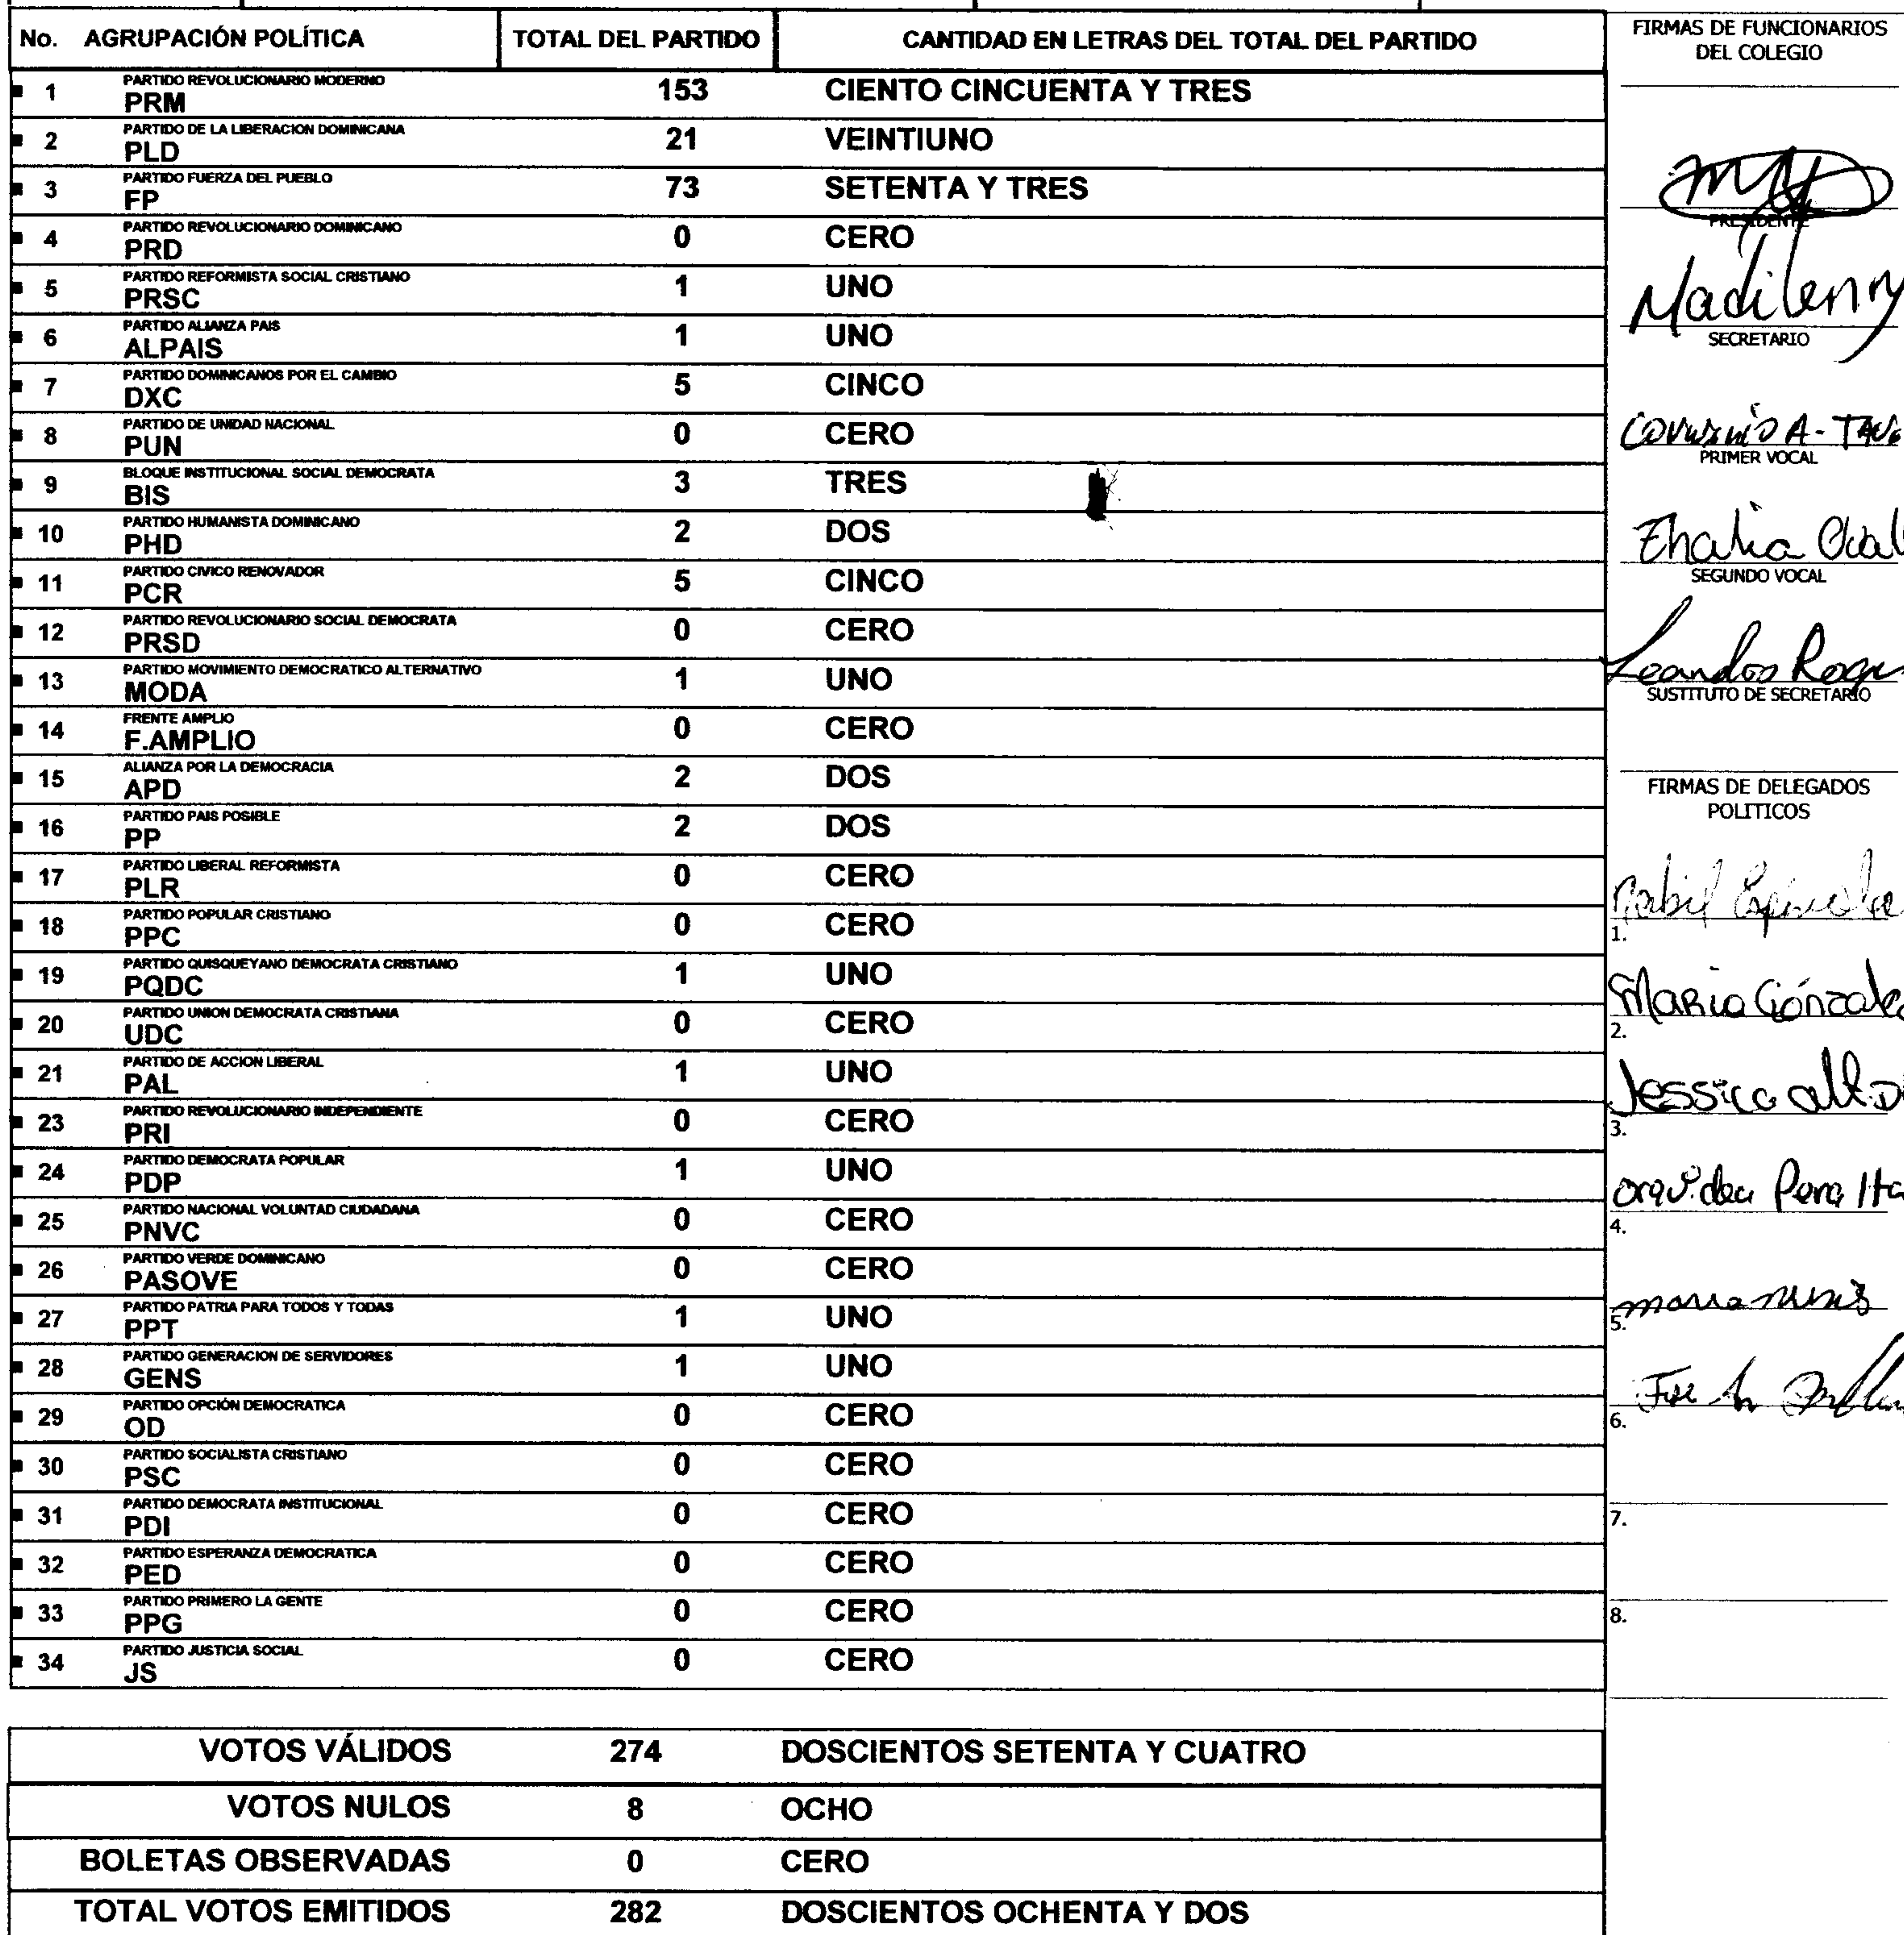 No. AGRUPACIÓN POLÍTICA TOTAL DEL PARTIDO CANTIDAD EN LETRAS DEL TOTAL DEL PARTIDO
1 PARTIDO REVOLUCIONARIO MODERNO
PRM 153 CIENTO CINCUENTA Y TRES
2 PARTIDO DE LA LIBERACION DOMINICANA
PLD 21 VEINTIUNO
3 PARTIDO FUERZA DEL PUEBLO
FP 73 SETENTA Y TRES
4 PARTIDO REVOLUCIONARIO DOMINICANO
PRD 0 CERO
5 PARTIDO REFORMISTA SOCIAL CRISTIANO
PRSC 1 UNO
6 PARTIDO ALIANZA PAIS
ALPAIS 1 UNO
7 PARTIDO DOMINICANOS POR EL CAMBIO
DXC 5 CINCO
8 PARTIDO DE UNIDAD NACIONAL
PUN 0 CERO
9 BLOQUE INSTITUCIONAL SOCIAL DEMOCRATA
BIS 3 TRES
10 PARTIDO HUMANISTA DOMINICANO
PHD 2 DOS
11 PARTIDO CIVICO RENOVADOR
PCR 5 CINCO
12 PARTIDO REVOLUCIONARIO SOCIAL DEMOCRATA
PRSD 0 CERO
13 PARTIDO MOVIMIENTO DEMOCRATICO ALTERNATIVO
MODA 1 UNO
14 FRENTE AMPLIO
F.AMPLIO 0 CERO
15 ALIANZA POR LA DEMOCRACIA
APD 2 DOS
16 PARTIDO PAIS POSIBLE
PP 2 DOS
17 PARTIDO LIBERAL REFORMISTA
PLR 0 CERO
18 PARTIDO POPULAR CRISTIANO
PPC 0 CERO
19 PARTIDO QUISQUEYANO DEMOCRATA CRISTIANO
PQDC 1 UNO
20 PARTIDO UNION DEMOCRATA CRISTIANA
UDC 0 CERO
21 PARTIDO DE ACCION LIBERAL
PAL 1 UNO
23 PARTIDO REVOLUCIONARIO INDEPENDIENTE
PRI 0 CERO
24 PARTIDO DEMOCRATA POPULAR
PDP 1 UNO
25 PARTIDO NACIONAL VOLUNTAD CIUDADANA
PNVC 0 CERO
26 PARTIDO VERDE DOMINICANO
PASOVE 0 CERO
27 PARTIDO PATRIA PARA TODOS Y TODAS
PPT 1 UNO
28 PARTIDO GENERACION DE SERVIDORES
GENS 1 UNO
29 PARTIDO OPCIÓN DEMOCRATICA
OD 0 CERO
30 PARTIDO SOCIALISTA CRISTIANO
PSC 0 CERO
31 PARTIDO DEMOCRATA INSTITUCIONAL
PDI 0 CERO
32 PARTIDO ESPERANZA DEMOCRATICA
PED 0 CERO
33 PARTIDO PRIMERO LA GENTE
PPG 0 CERO
34 PARTIDO JUSTICIA SOCIAL
JS 0 CERO
VOTOS VÁLIDOS 274 DOSCIENTOS SETENTA Y CUATRO
VOTOS NULOS 8 OCHO
BOLETAS OBSERVADAS 0 CERO
TOTAL VOTOS EMITIDOS 282 DOSCIENTOS OCHENTA Y DOS
FIRMAS DE FUNCIONARIOS
DEL COLEGIO
PRESIDENTE
Madilenny
SECRETARIO
PRIMER VOCAL
SEGUNDO VOCAL
SUSTITUTO DE SECRETARIO
FIRMAS DE DELEGADOS
POLITICOS
1.
Maria Gónzalez
2.
Jessica
3.
4.
5.
6.
7.
8.